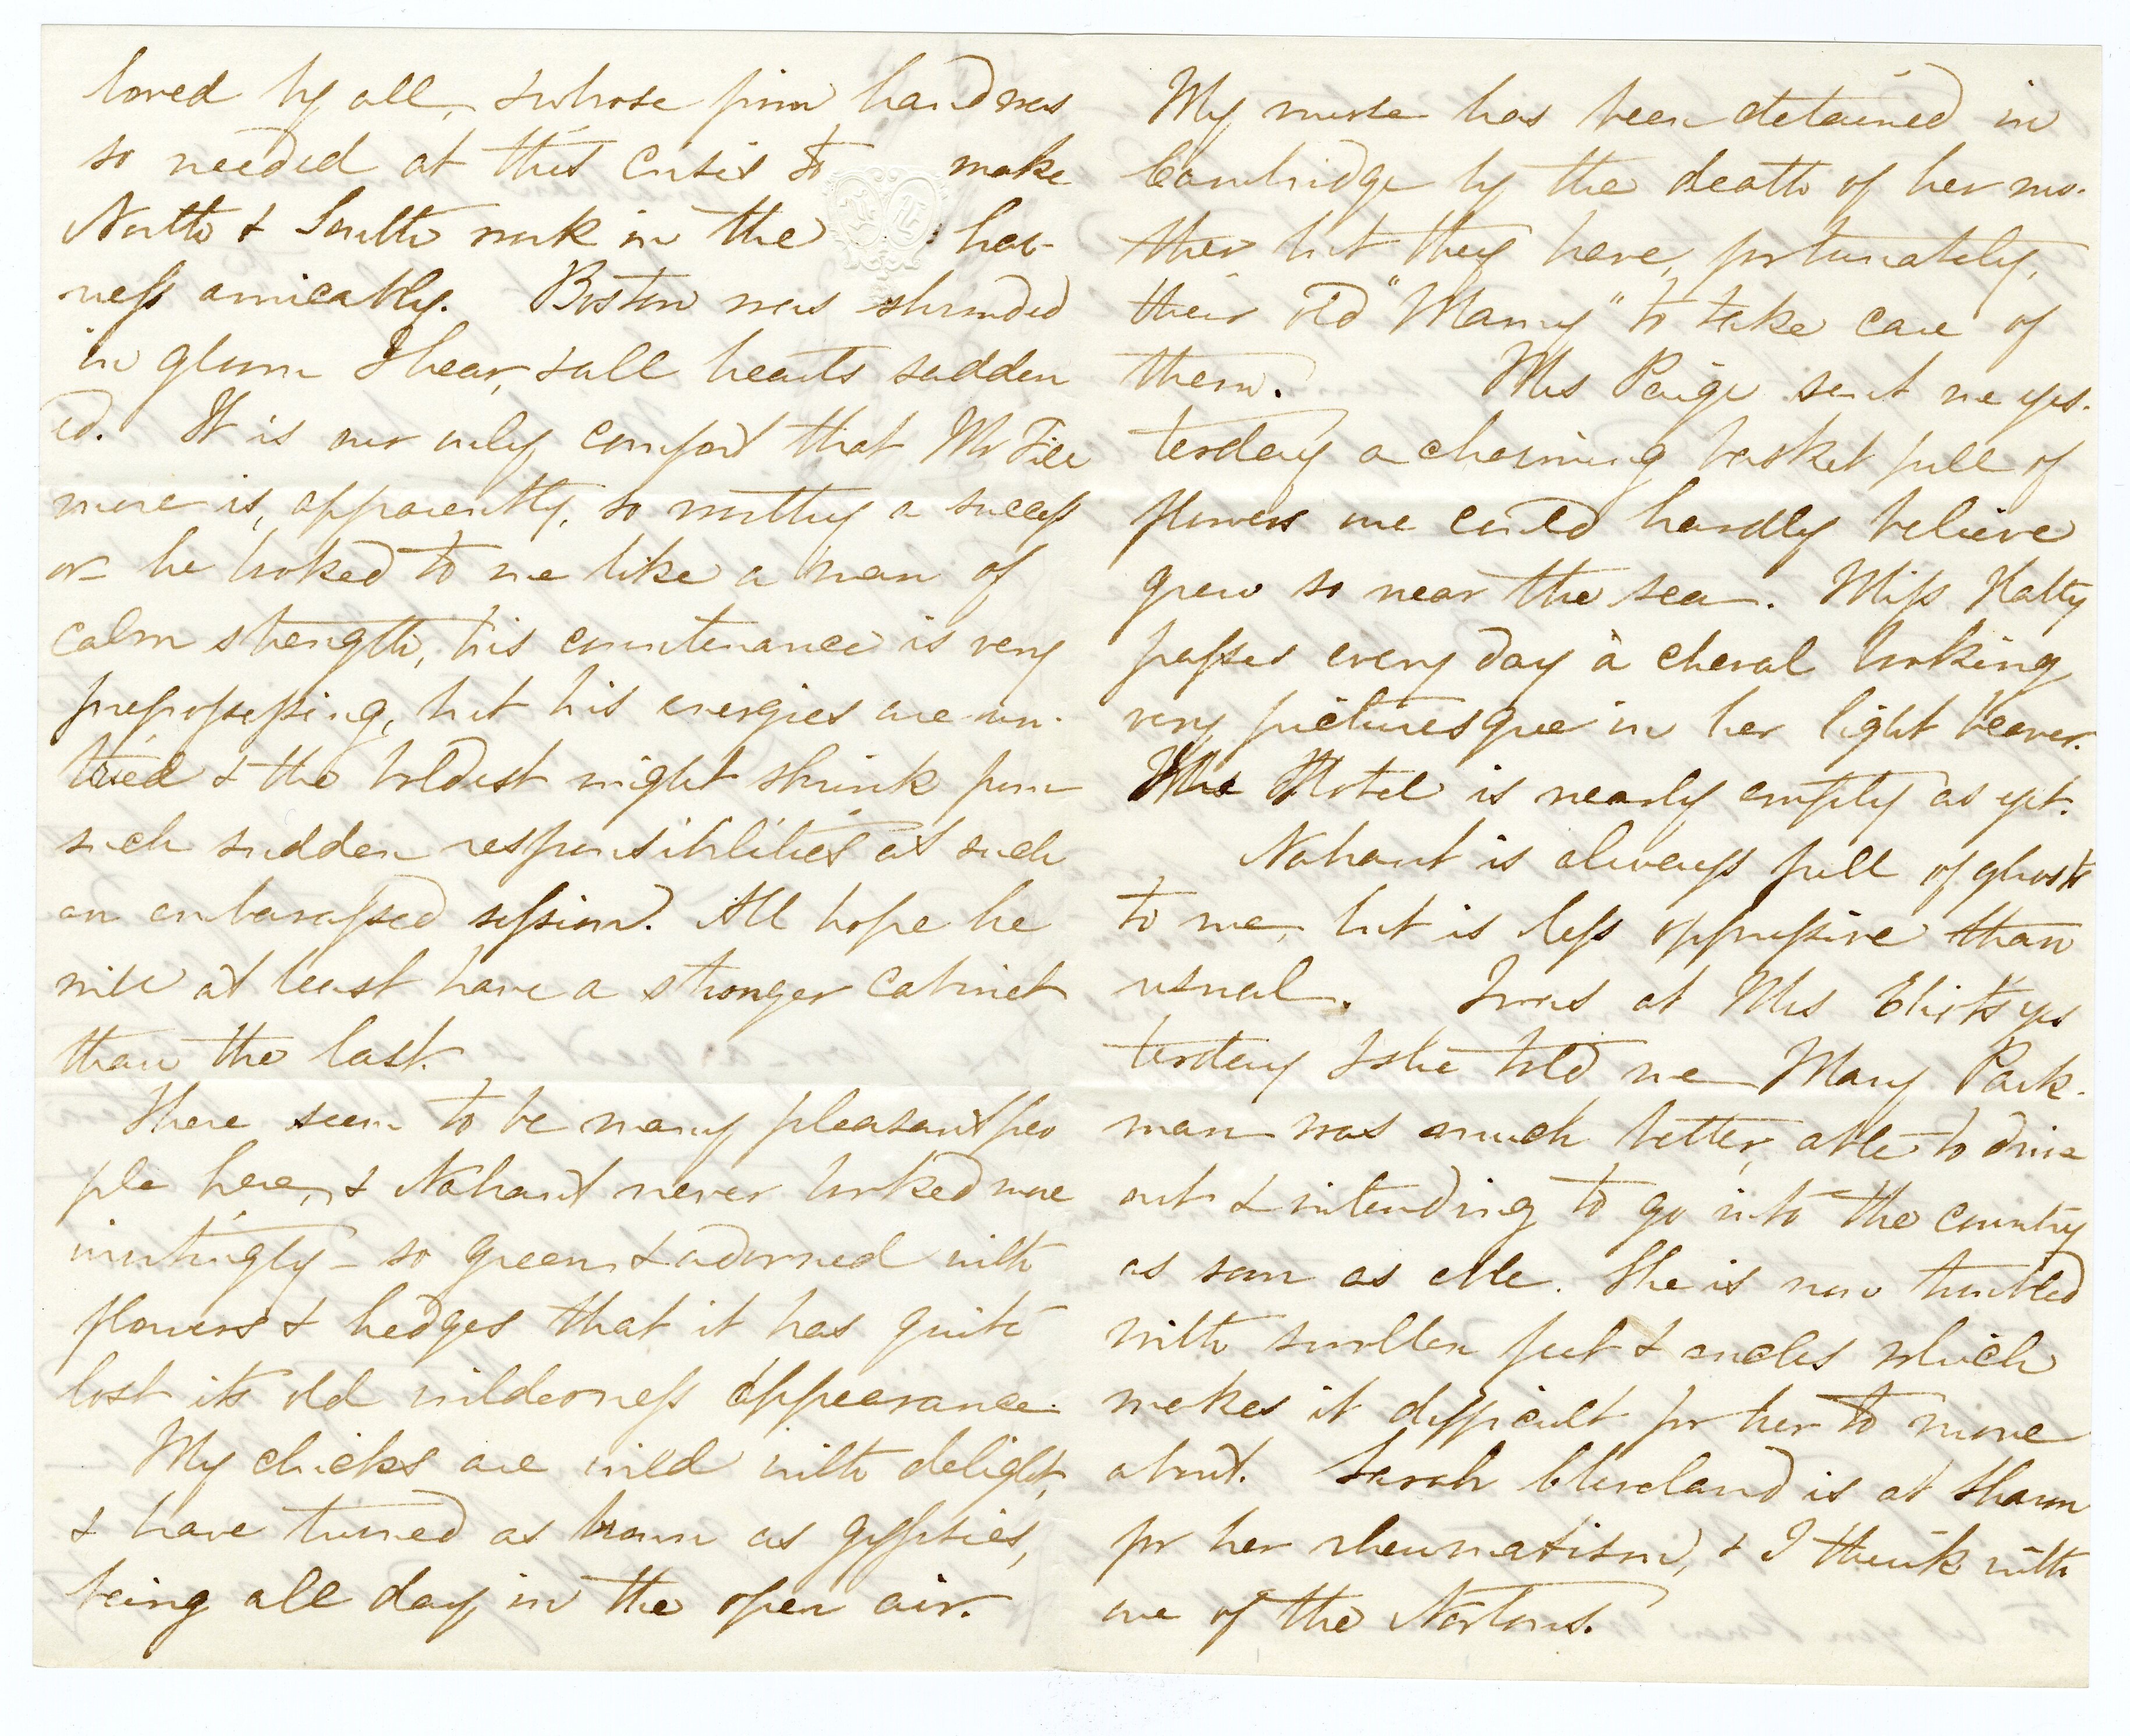 loved by all, & whose firm hand was
so needed at this crisis to make
North & South work in the har-
ness amicably. Boston was shrouded
in gloom I hear, & all hearts sadden
ed. It is our only comfort that Mr Fill
more is, apparently, so worthy a success
or – he looked to me like a man of
calm strength, his countenance is very
prepossessing, but his energies are un-
tried & the boldest might shrink from
such sudden responsibilities at such
an embarassed session. All hope he
will at least have a stronger cabinet
than the last.
There seem to be many pleasant peo
ple here, & Nahant never looked more
invitingly – so green & adorned with
flowers & hedges that it has quite
lost its old wilderness appearance.
My chicks are wild with delight,
& have turned as brown as gypsies,
being all day in the open air.
My nurse has been detained in
Cambridge by the death of her mo-
ther but they have, fortunately,
their old "Mamy" to take care of
them. Mrs Paige sent me yes-
terday a charming basket full of
flowers one could hardly believe
grew so near the sea. Miss Hatty
passes every day à cheval looking
very picturesque in her light beaver.
The Hotel is nearly empty as yet.
Nahant is always full of ghosts
to me, but is less oppressive than
usual. I was at Mrs Eliots yes
terday & she told me Mary Park-
man was much better, able to drive
out & intending to go into the country
as soon as able. She is now troubled
with swollen feet & ancles which
makes it difficult for her to move
about. Sarah Cleveland is at Sharon
for her rheumatism, & I think with
one of the Nortons.